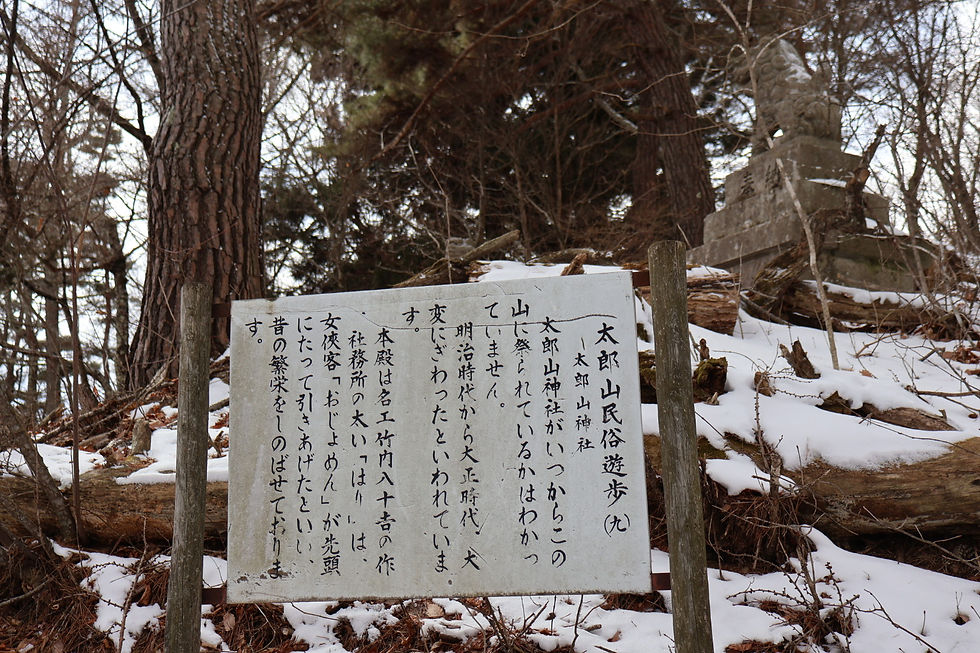 太郎山民俗遊歩(九)
―太郎山神社
太郎山神社がいつからこの
山に祭られているかはわかっ
ていません。
明治時代から大正時代、大
変にぎわったといわれていま
す。
本殿は名工竹内八十吉の作
社務所の太い「はり」は、
女侠客「おじょめん」が先頭
にたって引きあげたといい、
昔の繁栄をしのばせておりま
す。